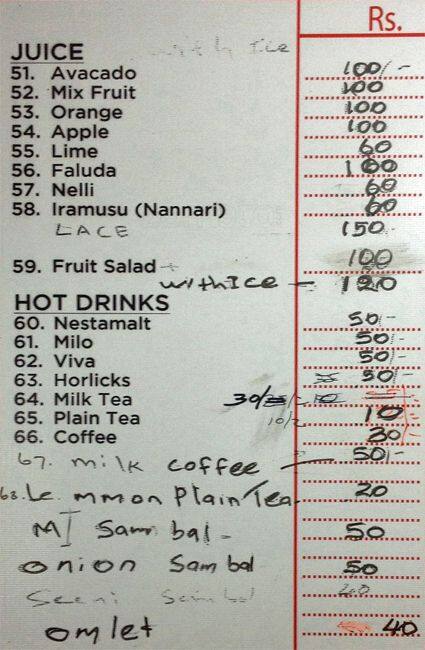 Rs.
with Ice
JUICE
51. Avacado 100/-
52. Mix Fruit 100
53. Orange 100
54. Apple 100
55. Lime 60
56. Faluda 100
57. Nelli 60
58. Iramusu (Nannari) 60
LACE 150
59. Fruit Salad 100
with Ice - 120
HOT DRINKS
60. Nestamalt 50/-
61. Milo 50/-
62. Viva 50/-
63. Horlicks 50/-
64. Milk Tea
65. Plain Tea 10/2 10
66. Coffee 30/-
67. milk coffee - 50/-
68. Le mmon Plain Tea. 20
MI Sam bal - 50
onion Sambal 50
Seeni Sambol 40
omlet 40